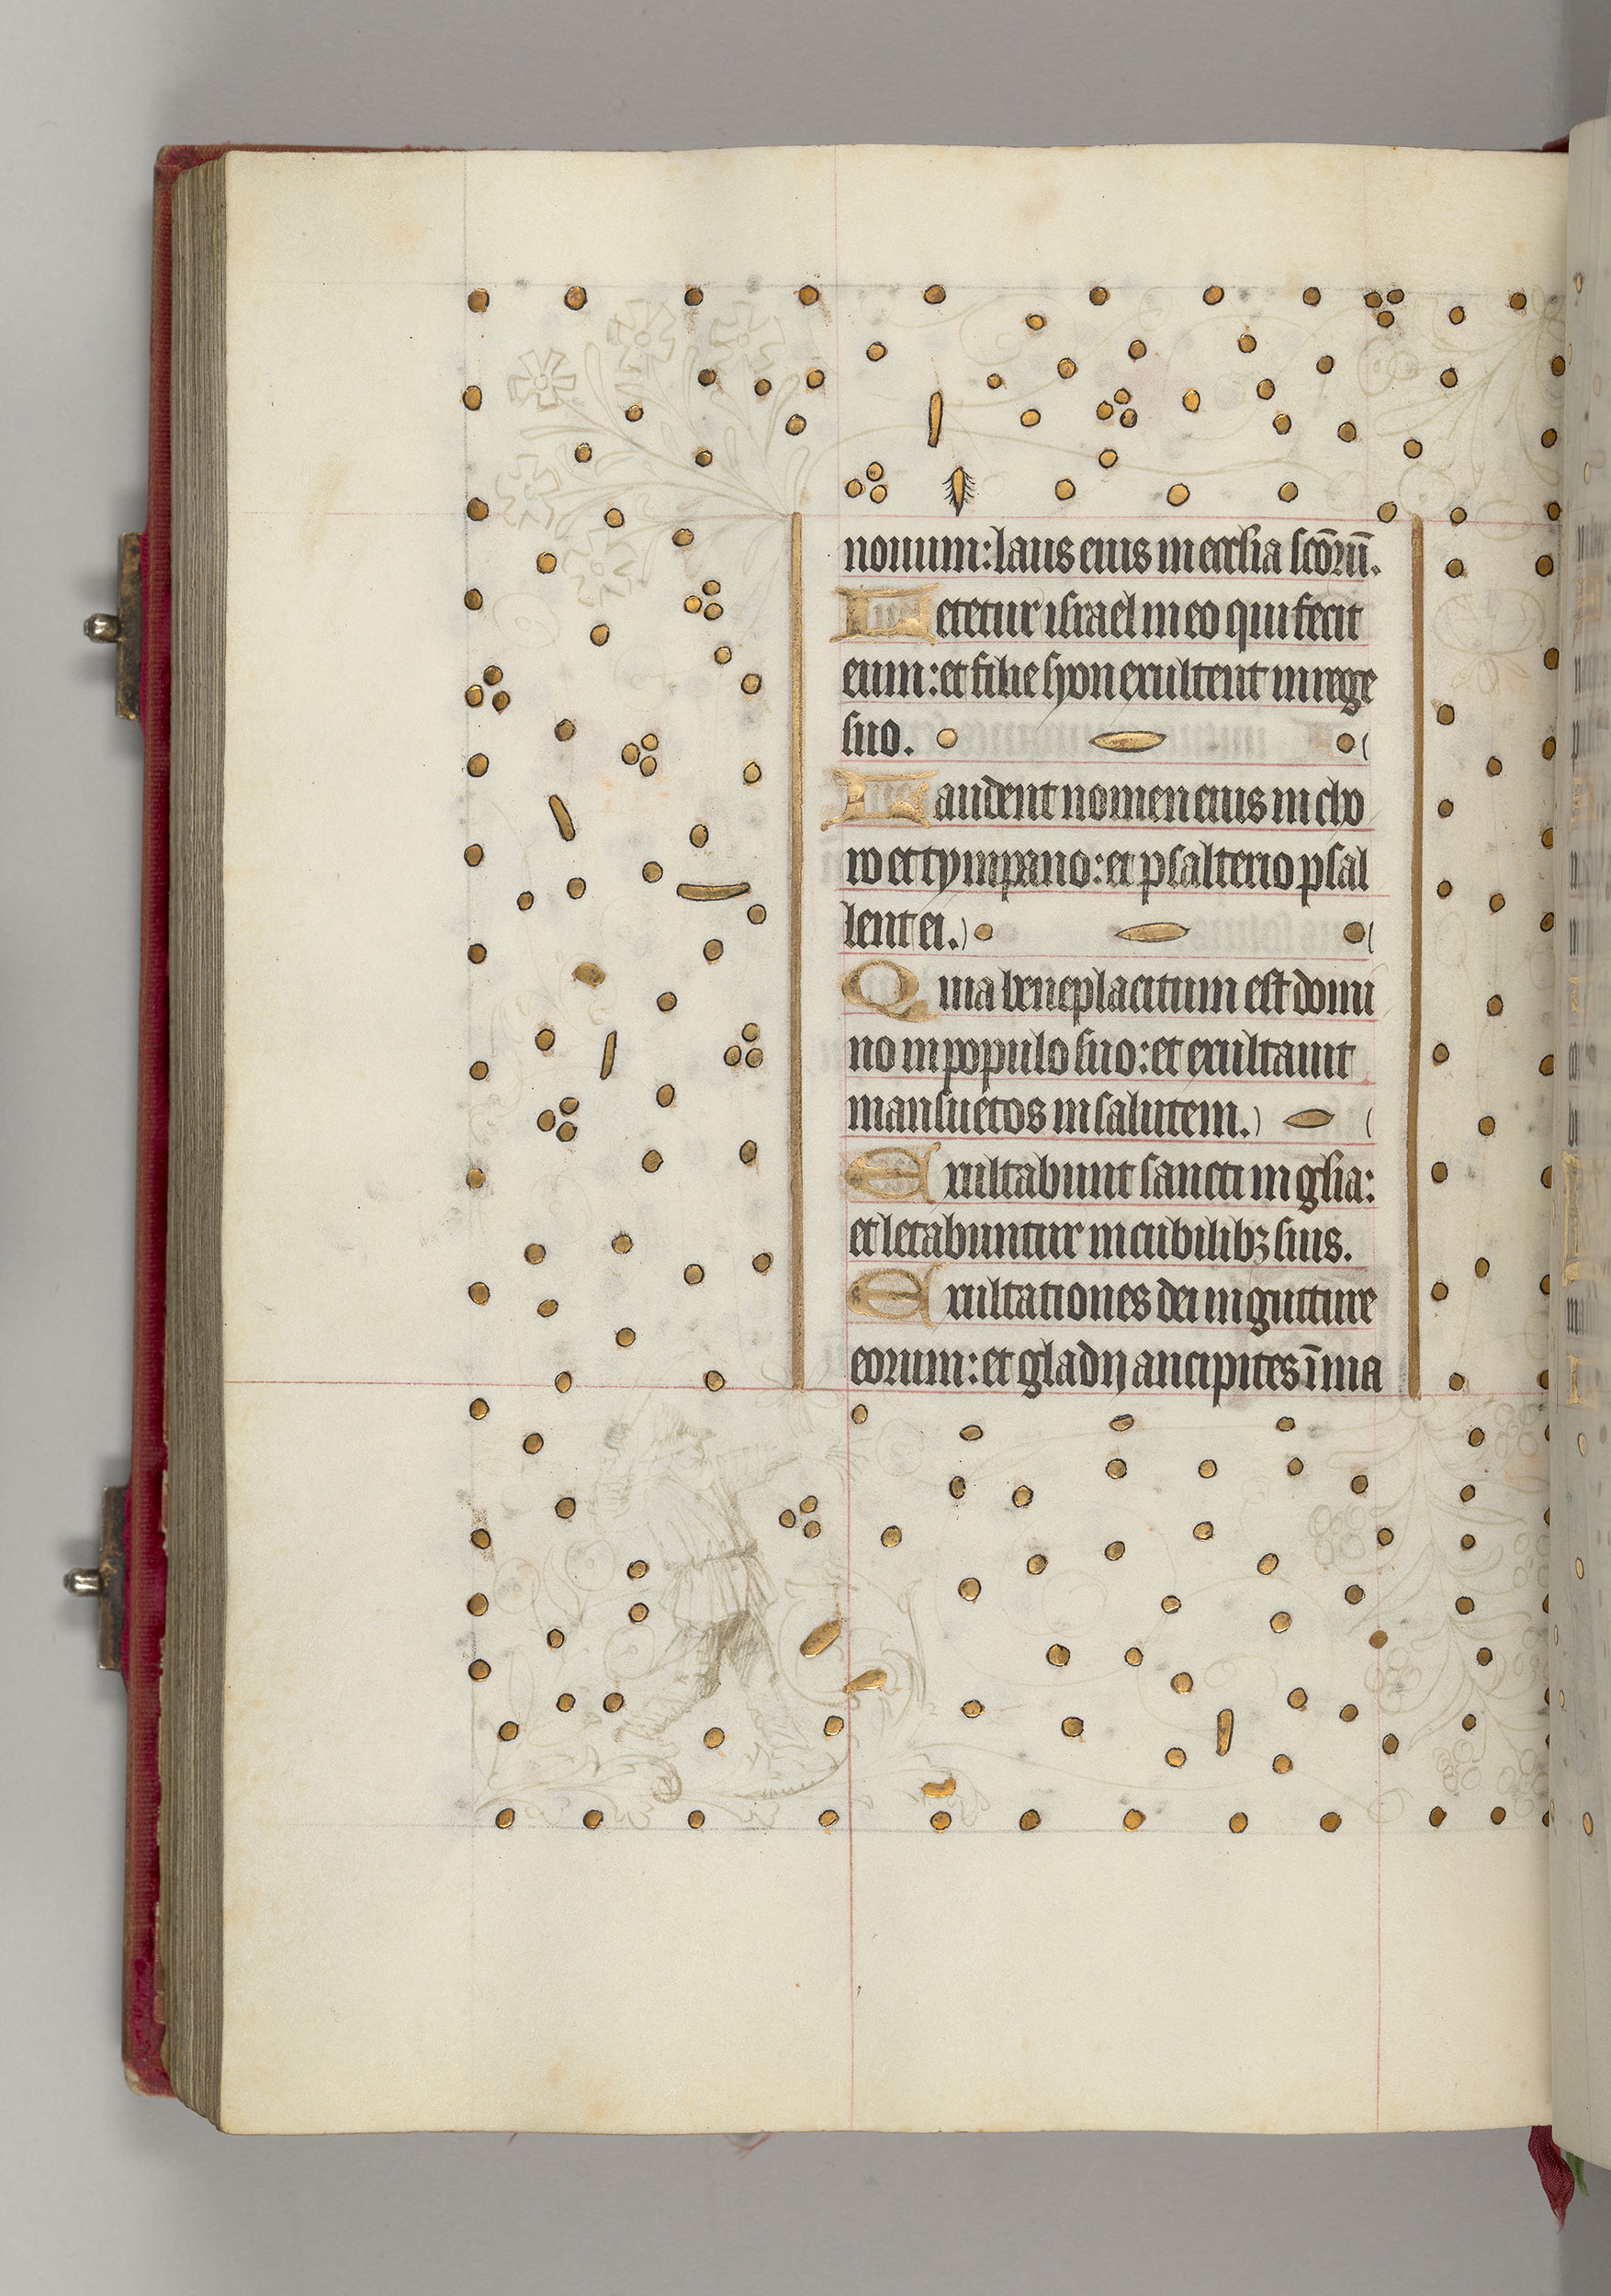 nouum: laus eius in ecclīa scōꝝū.
Letetur israel in eo qui fecit
eum: et filie syon exultent in rege
suo.
Laudent nomen eius in cho
ro et tympano: et psalterio psal
lent ei.
Quia beneplacitum est domi
no in populo suo: et exultauit
mansuetos in salutem.
Exultabunt sancti in glīa:
et letabuntur in cubilibꝫ suis.
Exultationes dei in gutture
eorum: et gladij ancipites ī ma